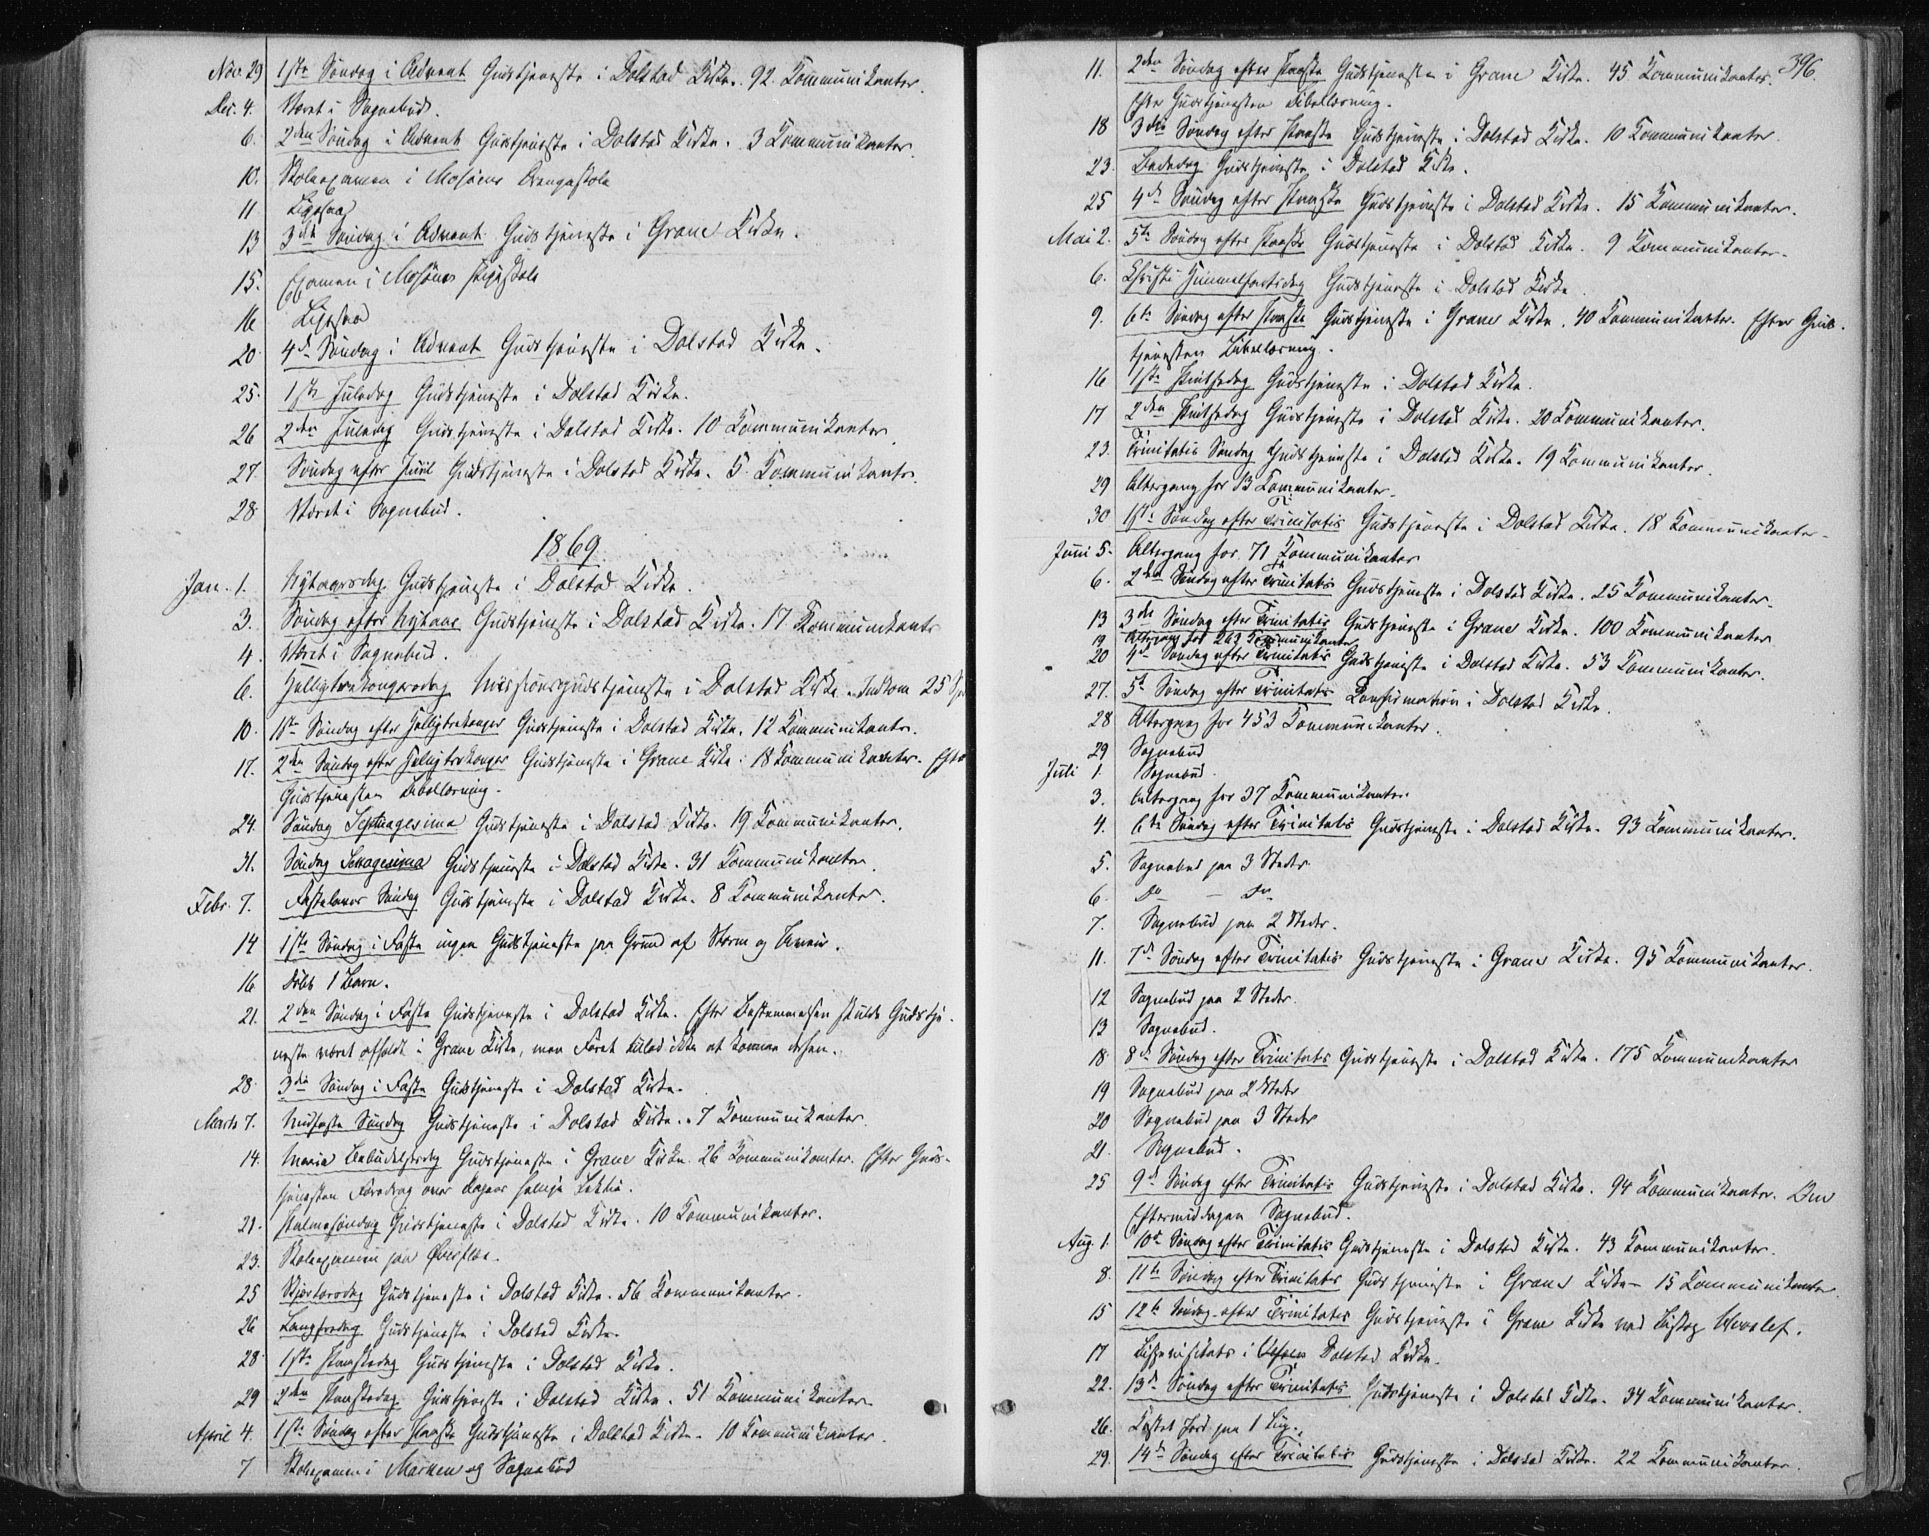 Nov. 29 1ste Søndag i Advent Gudstjeneste i Dolstad Kirke. 92 Kommunikanter.
Dec. 4. Været i Sognebud.
6. 2den Søndag i Advent Gudstjeneste i Dolstad Kirke. 3 Kommunikanter.
10. Skoleexamen i Mosjøens Drengeskole
11 Ligesaa
13 3die Søndag i Advent Gudstjeneste i Grane Kirke.
15. Examen i Mosjøens Pigeskole
16 Ligesaa
20. 4de Søndag i Advent Gudstjeneste i Dolstad Kirke.
25. 1ste Juledag Gudstjeneste i Dolstad Kirke.
26 2den Juledag Gudstjeneste i Dolstad Kirke. 10 Kommunikanter.
27. Søndag efter Juul Gudstjeneste i Dolstad Kirke. 5 Kommunikantr.
28 Været i Sognebud.
1869.
Jan. 1. Nytaarsdag Gudstjeneste i Dolstad Kirke.
3. Søndag efter Nytaar Gudstjeneste i Dolstad Kirke. 17 Kommunikantr
4. Været i Sognebud.
6. Helligtrekongersdag Missionsgudstjeneste i Dolstad Kirke. Indkom 25 Spd
10. 1ste Søndag efter Helligtrekonger Gudstjeneste i Dolstad Kirke. 12 Kommunikanter.
17. 2den Søndag efter Helligtrekonger Gudstjeneste i Grane Kirke. 18 Kommunikanter. Efter
Gudstjenesten Bibellæsning.
24. Søndag Septuagesima Gudstjeneste i Dolstad Kirke. 19 Kommunikanter.
31. Søndag Sexagesima Gudstjeneste i Dolstad Kirke. 31 Kommunikanter.
Febr. 7. Fastelavns Søndag Gudstjeneste i Dolstad Kirke. 8 Kommunikanter.
14 1ste Søndag i Faste ingen Gudstjeneste paa Grund af Storm og Uveir.
16 Døbt 1 Barn.
21. 2den Søndag i Faste Gudstjeneste i Dolstad Kirke. Efter Bestemmelsen skulde Gudstje-
neste været afholdt i Grane Kirke, men Føret tillod ikke at komme dertil.
28. 3die Søndag i Faste Gudstjeneste i Dolstad Kirke.
Marts 7. Midfaste Søndag Gudstjeneste i Dolstad Kirke. 7 Kommunikanter.
14. Maria Bebudelsesdag Gudstjeneste i Grane Kirke. 26 Kommunikanter. Efter Guds-
tjenesten Foredrag over Dagens Lektie.
21. Palmesøndag Gudstjeneste i Dolstad Kirke. 10 Kommunikanter.
23. Skoleexamen paa
25 Skjærtorsdag Gudstjeneste i Dolstad Kirke. 56 Kommunikanter.
26 Langfredag Gudstjeneste i Dolstad Kirke.
28 1ste Paaskedag Gudstjeneste i Dolstad Kirke.
29 2den Paaskedag Gudstjeneste i Dolstad Kirke. 51 Kommunikanter
April 4. 1ste Søndag efter Paaske Gudstjeneste i Dolstad Kirke. 10 Kommunikanter.
7 Skoleexamen i Marken og Sognebud
396.
11. 2den Søndag efter Paaske Gudstjeneste i Grane Kirke. 45 Kommunikanter.
Efter Gudstjenesten Bibellæsning.
18 3die Søndag efter Paaske Gudstjeneste i Dolstad Kirke. 10 Kommunikanter
23. Bededag Gudstjeneste i Dolstad Kirke.
25 4de Søndag efter Paaske Gudstjeneste i Dolstad Kirke. 15 Kommunikanter.
Mai 2. 5te Søndag efter Paaske Gudstjeneste i Dolstad Kirke. 9 Kommunikanter.
6. Christi Himmelfartsdag Gudstjeneste i Dolstad Kirke
9. 6te Søndag efter Paaske Gudstjeneste i Grane Kirke. 40 Kommunikanter. Efter Guds-
tjenesten Bibellæsning.
16 1ste Pintsedag Gudstjeneste i Dolstad Kirke.
17 2den Pintsedag Gudstjeneste i Dolstad Kirke. 20 Kommunikanter.
23. Trinitatis Søndag Gudstjeneste i Dolstad Kirke. 19 Kommunikanter.
29 Altergang for 13 Kommunikanter.
30 1ste Søndag efter Trinitatis Gudstjeneste i Dolstad Kirke. 18 Kommunikanter.
Juni 5. Altergang for 71 Kommunikanter
6. 2den Søndag efter Trinitatis Gudstjeneste i Dolstad Kirke. 25 Kommunikanter.
13 3die Søndag efter Trinitatis Gudstjeneste i Grane Kirke. 100 Kommunikanter
19 Altergang for 263 Kommunikanter
20 4de Søndag efter Trinitatis Gudstjeneste i Dolstad Kirke. 53 Kommunikanter.
27. 5te Søndag efter Trinitatis Konfirmation i Dolstad Kirke.
28 Altergang for 453 Kommunikanter.
29 Sognebud
Juli 1. Sognebud.
3. Altergang for 37 Kommunikanter.
4. 6te Søndag efter Trinitatis Gudstjeneste i Dolstad Kirke. 93 Kommunikanter.
5. Sognebud paa 3 Steder
6. Do — Do
7. Sognebud paa 2 Steder.
11. 7de Søndag efter Trinitatis Gudstjeneste i Grane Kirke. 95 Kommunikanter.
12 Sognebud paa 2 Steder.
13 Sognebud.
18. 8de Søndag efter Trinitatis Gudstjeneste i Dolstad Kirke. 175 Kommunikanter
19 Sognebud paa 2 Steder
20 Sognebud paa 3 Steder
21. Sognebud.
25 9de Søndag efter Trinitatis Gudstjeneste i Dolstad Kirke. 94 Kommunikanter. Om
Eftermiddagen Sognebud.
Aug. 1. 10de Søndag efter Trinitatis Gudstjeneste i Dolstad Kirke. 43 Kommunikanter.
8. 11te Søndag efter Trinitatis Gudstjeneste i Grane Kirke. 15 Kommunikanter
15 12te Søndag efter Trinitatis Gudstjeneste i Grane Kirke ved Biskop
17 Bispevisitats i Dolstad Kirke.
22. 13de Søndag efter Trinitatis Gudstjeneste i Dolstad Kirke. 34 Kommunikanter.
26. Kastet Jord paa 1 Lig.
29. 14de Søndag efter Trinitatis Gudstjeneste i Dolstad Kirke. 22 Kommunikanter.